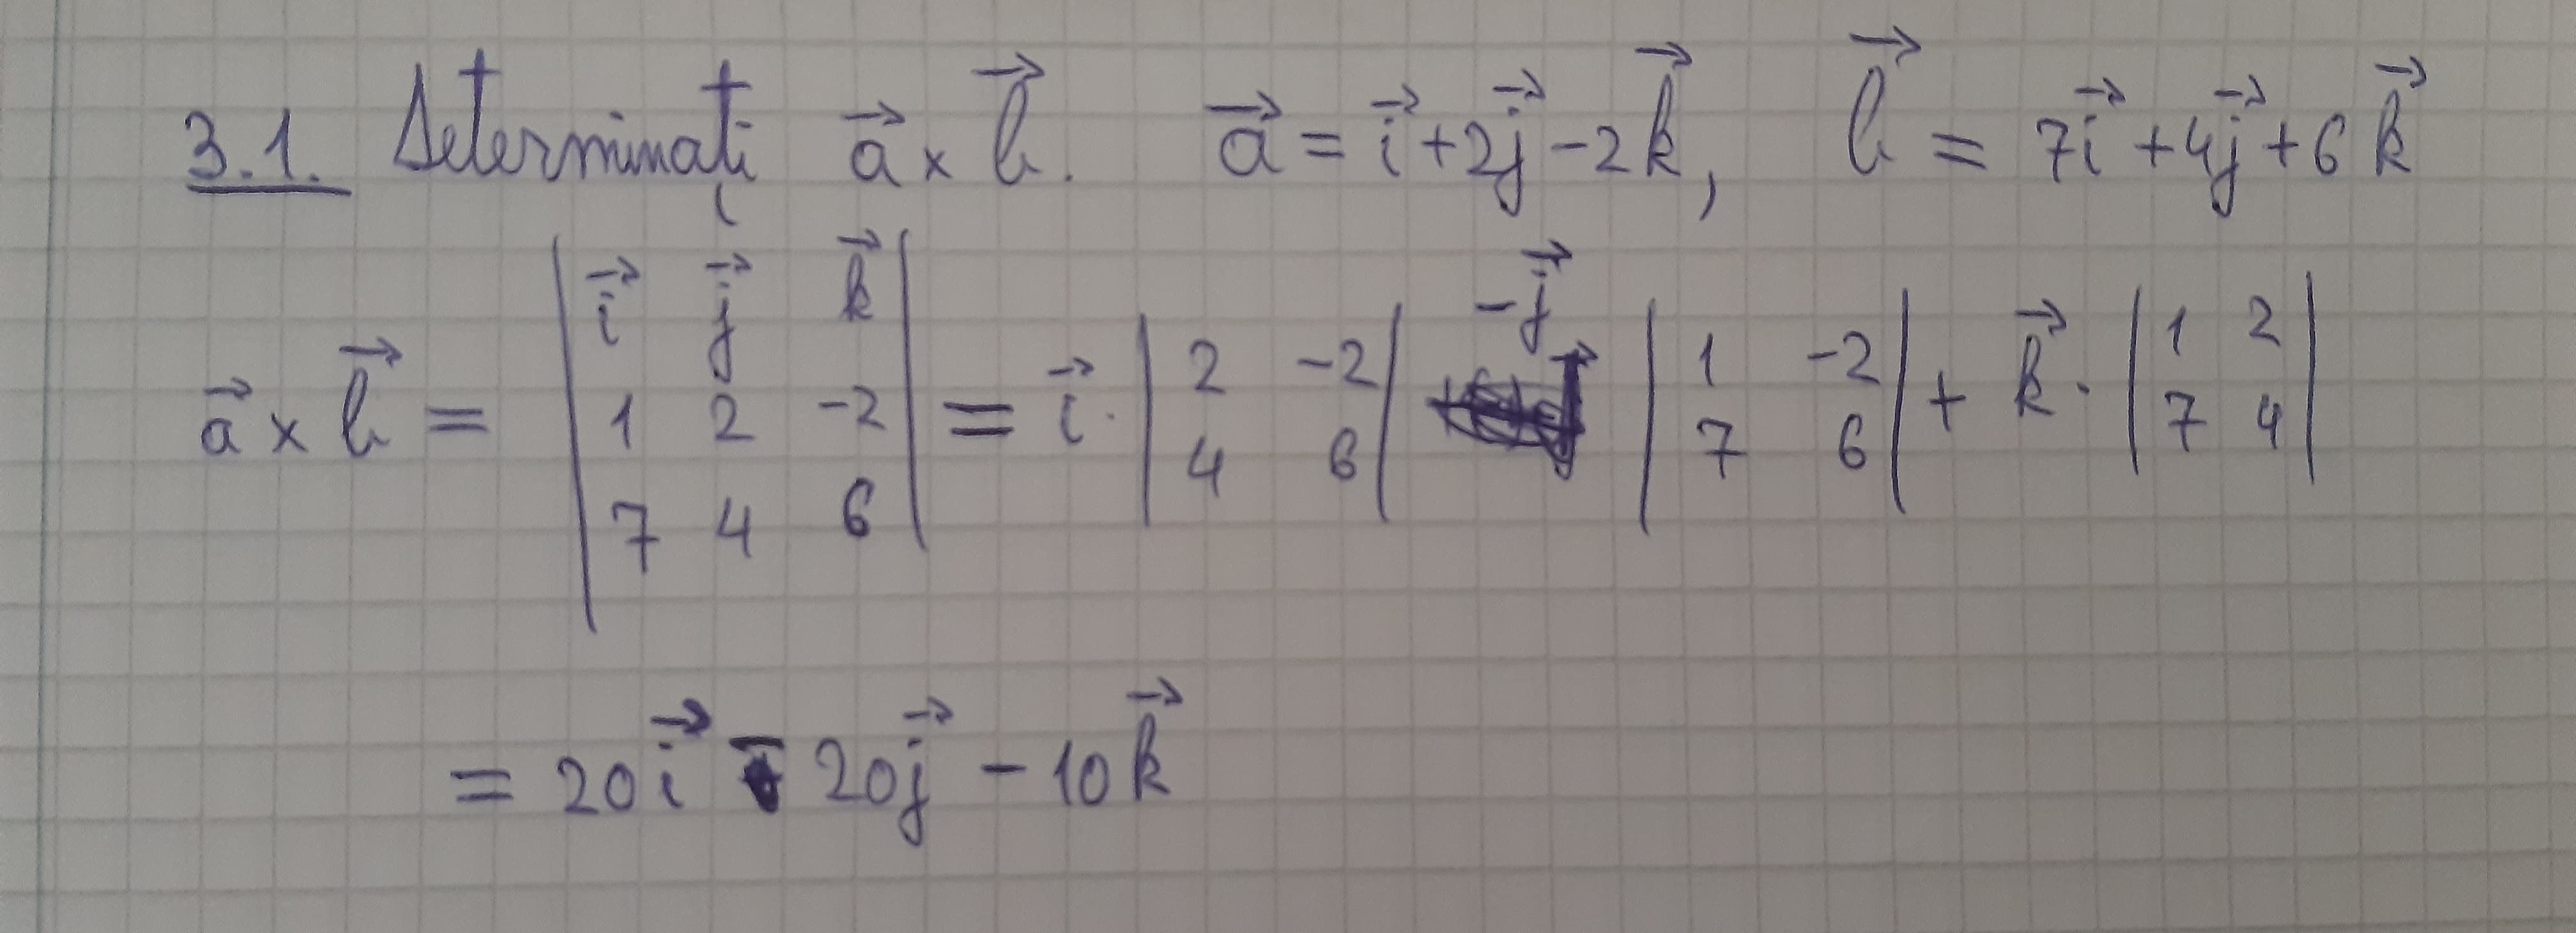 3.1. Determinați a⃗ × b⃗. a⃗ = i⃗ + 2j⃗ - 2k⃗, b⃗ = 7i⃗ + 4j⃗ + 6k⃗
a⃗ × b⃗ = | i⃗ j⃗ k⃗ ; 1 2 -2 ; 7 4 6 | = i⃗ · | 2 -2 ; 4 6 | - j⃗ | 1 -2 ; 7 6 | + k⃗ · | 1 2 ; 7 4 |
= 20i⃗ - 20j⃗ - 10k⃗